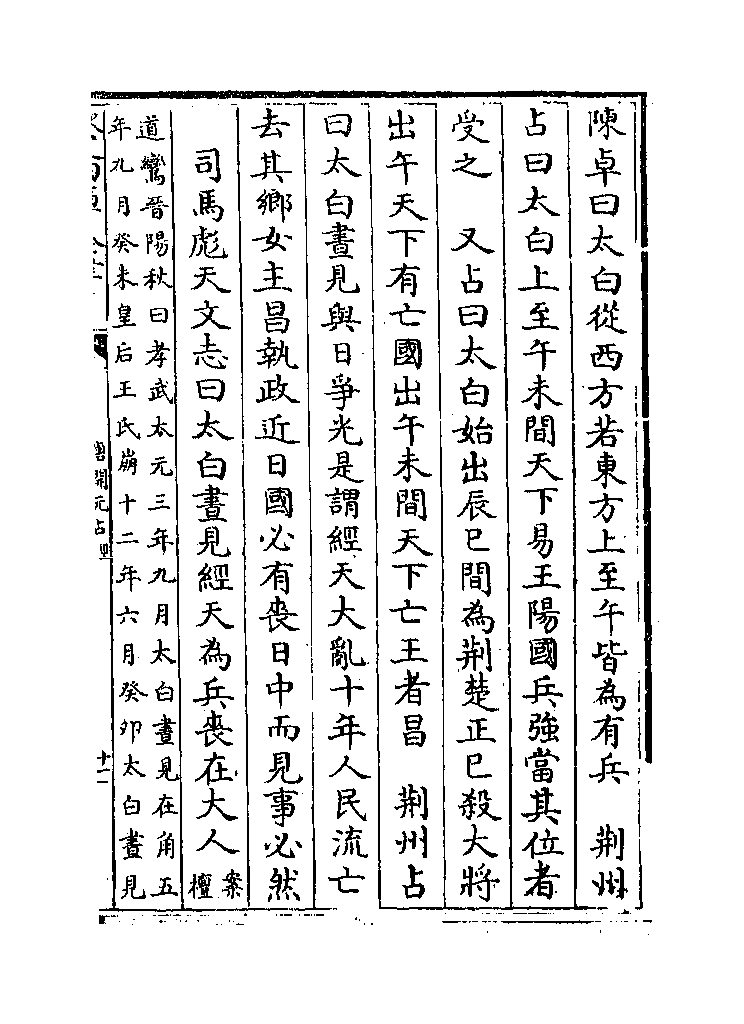 陳卓曰太白從西方若東方上至午皆為有兵　荆州
占曰太白上至午未間天下易王陽國兵強當其位者
受之　又占曰太白始出辰巳間為荆楚正巳殺大將
出午天下有亡國出午未間天下亡王者昌　荆州占
曰太白晝見與日爭光是謂經天大亂十年人民流亡
去其鄉女主昌執政近日國必有喪日中而見事必然
司馬彪天文志曰太白晝見經天為兵喪在大人案檀
道鸞晉陽秋曰孝武太元三年九月太白晝見在角五
年九月癸未皇后王氏崩十二年六月癸卯太白晝見
唐開元占
十一